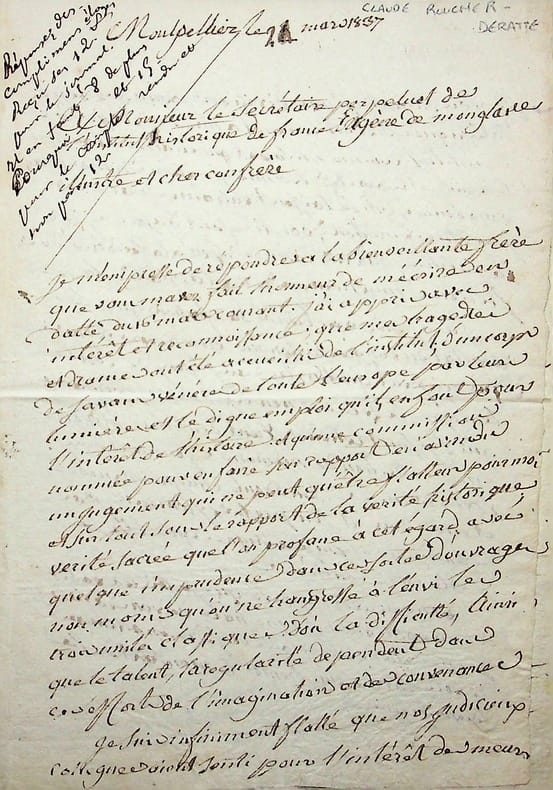 CLAUDE ROUCHER-
DERATTE
Montpellier le 21 mars 1837
Réponses des
complimens
Reçu ses 12
pour le journal.
et en 8 de plus
Pourquoi et 15
pour le rendu et
non pas 12
A Monsieur le secrétaire perpétuel de
l'institut historique de france Eugène de monglave
illustre et cher confrère
Je m'empresse de repondre a la bienveillante
que vous m'avez fait l'honneur de m'écrire en
datte du 15 mars courant. j'ai appris avec
intérêt et reconnoissance, que ma tragedie
et drame ont été accueillis de l'institut d'un corps
de savans vénéré de toute l'europe par leurs
lumières et le digne emploi qu'ils en font pour
l'intérêt de l'histoire et qu'une commission
nommée pour en faire son rapport en a emis
un jugement qui ne peut qu'être flatteur pour moi
et sur tout sous le rapport de la verité historique,
verité sacrée que l'on profane à cet egard avec
quelque impudence dans ces sortes d'ouvrages
non moins qu'on ne transgresse à l'envi les
trois unités classiques d'où la difficulté, ainsi
que le talent, la regularité dependent dans
ces efforts de l'imagination et des convenances
Je suis infiniment flatté que nos judicieux
collegues aient senti pour l'intérêt des mœurs